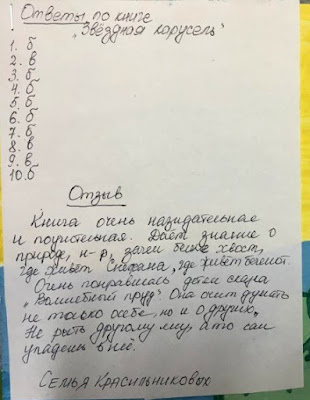 Ответы по книге
„Звёздная карусель"
1. б
2. в
3. б
4. б
5. б
6. б
7. б
8. в
9. в
10. б
Отзыв
Книга очень назидательная
и поучительная. Даёт знание о
природе, н-р, зачем белке хвост,
где живёт , где живёт бегемот.
Очень понравилась детям сказка
„Волшебный пруд". Она учит думать
не только о себе, но и о других.
Не рыть другому яму, а то сам
упадёшь в неё.
Семья Красильниковых